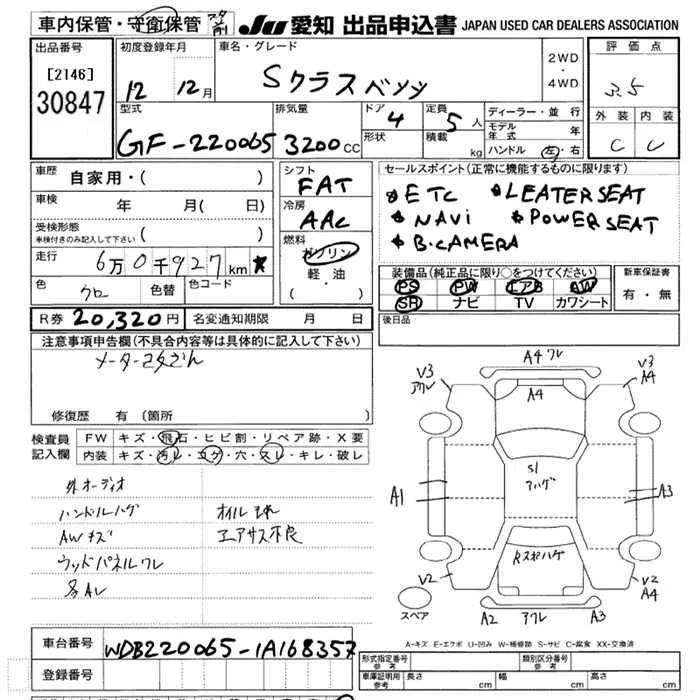 車内保管・守衛保管
JU 愛知 出品申込書 JAPAN USED CAR DEALERS ASSOCIATION
出品番号
[2146]
30847
初度登録年月
12 12月
車名・グレード
Sクラスベンツ
2WD
・
4WD
評価点
3.5
外装 内装
C C
型式
GF-220065
排気量
3200cc
ドア 4
形状
定員 5人
積載 kg
ディーラー・並行
モデル年式 年
ハンドル 左・右
車歴
自家用・( )
車検
年 月( 日)
受検形態
※検付きのみ記入して下さい ( )
走行
6万0千927km *
色
クロ
色替
色コード
シフト
FAT
冷房
AAC
燃料
ガソリン
軽・油
( ・ )
セールスポイント(正常に機能するものに限ります)
*ETC *LEATERSEAT
*NAVi *POWERSEAT
*B.CAMERA
装備品(純正品に限り○をつけてください)
PS PW エアB AW
SR ナビ TV カワシート
新車保証書
有・無
R券 20,320円 名変通知期限 月 日
後日品
注意事項申告欄(不具合内容等は具体的に記入して下さい)
修復歴 有(箇所
検査員
記入欄
FW キズ・飛石・ヒビ割・リペア跡・X要
内装 キズ・汚レ・コゲ・穴・スレ・キレ・破レ
外オーディオ
ハンドルハゲ
AWキズ
ウッドパネルワレ
オイルモレ
エアサス不良
A4ワレ
V3
アワレ
A4
V3
A4
A1
S1
アハゲ
A3
Rスポハゲ
V2
V2
A4
スペア
A2 アワレ A3
A-キズ E-エクボ U-凹み W-補修跡 S-サビ C-腐食 XX-交換済
車台番号
WDB220065-1A168357
登録番号
形式指定番号
参考
類別区分番号
参考
車庫証明用
参考
長さ cm 幅 cm 高さ cm